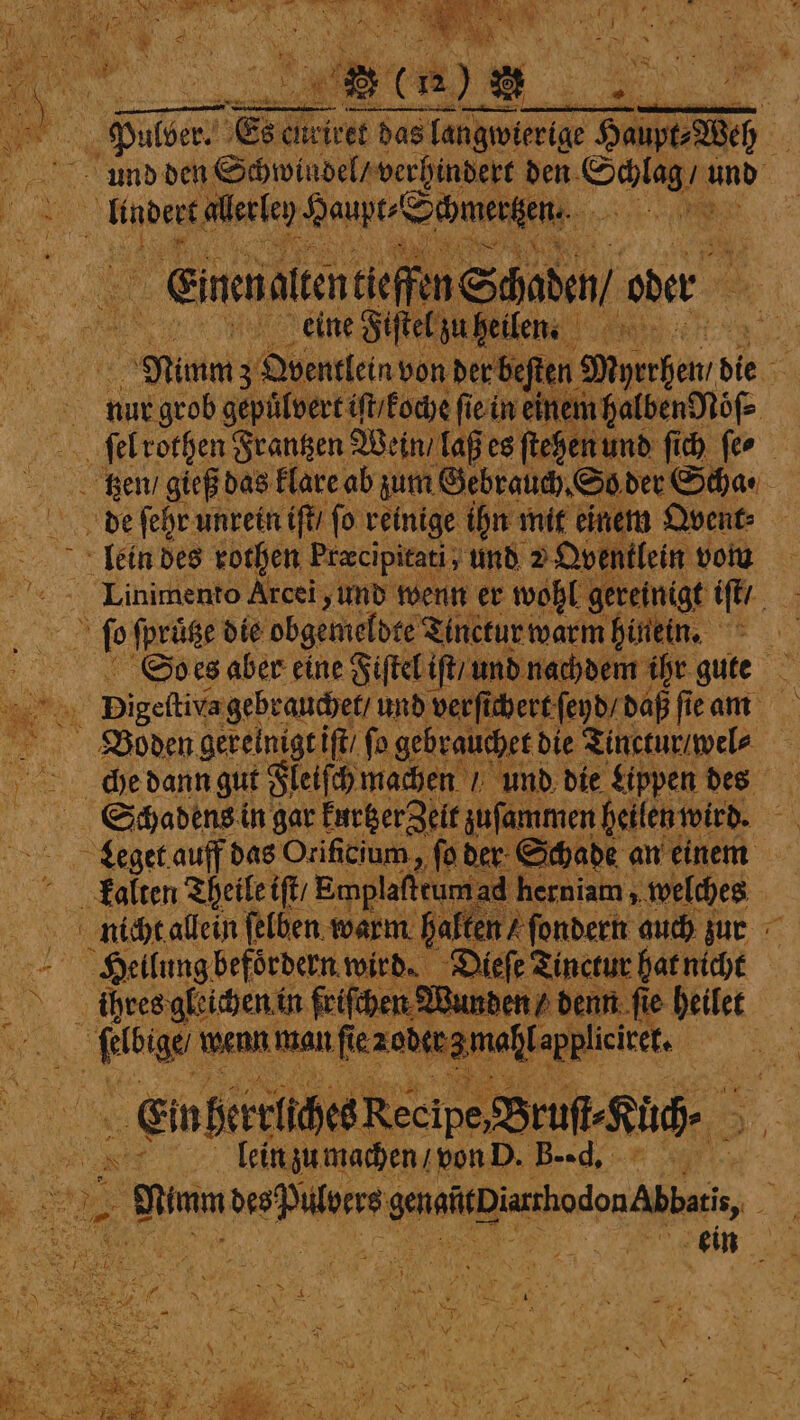 ❁ (12) ❁
Pulver. Es curiret das langwierige Haupt-Weh
und den Schwindel/ verhindert den Schlag/ und
lindert allerley Haupt-Schmertzen.
Einen alten tieffen Schaden/ oder
eine Fiſtel zu heilen.
Nimm 3 Qventlein von der beſten Myrrhen/ die
nur grob gepuͤlvert iſt/ koche ſie in einem halben Noͤſ-
ſel rothen Frantzen Wein/ laß es ſtehen und ſich ſe-
tzen/ gieß das klare ab zum Gebrauch. So der Scha-
de ſehr unrein iſt/ ſo reinige ihn mit einem Qvent-
lein des rothen Præcipitati, und 2 Qventlein vom
Linimento Arcei, und wenn er wohl gereinigt iſt/
ſo ſpruͤtze die obgemeldte Tinctur warm hinein.
So es aber eine Fiſtel iſt/ und nachdem ihr gute
Digeſtiva gebrauchet/ und verſichert ſeyd/ daß ſie am
Boden gereinigt iſt/ ſo gebrauchet die Tinctur/ wel-
che dann gut Fleiſch machen / und die Lippen des
Schadens in gar kurtzer Zeit zuſammen heilen wird.
Leget auff das Orificium, ſo der Schade an einem
kalten Theile iſt/ Emplaſtrum ad herniam, welches
nicht allein ſelben warm halten / ſondern auch zur
Heilung befoͤrdern wird. Dieſe Tinctur hat nicht
ihres gleichen in friſchen Wunden / denn ſie heilet
ſelbige/ wenn man ſie 2 oder 3 mahl appliciret.
Ein herrliches Recipe, Bruſt-Kuͤch-
lein zu machen / von D. B--d.
Nimm des Pulvers genañt Diarrhodon Abbatis,
ein